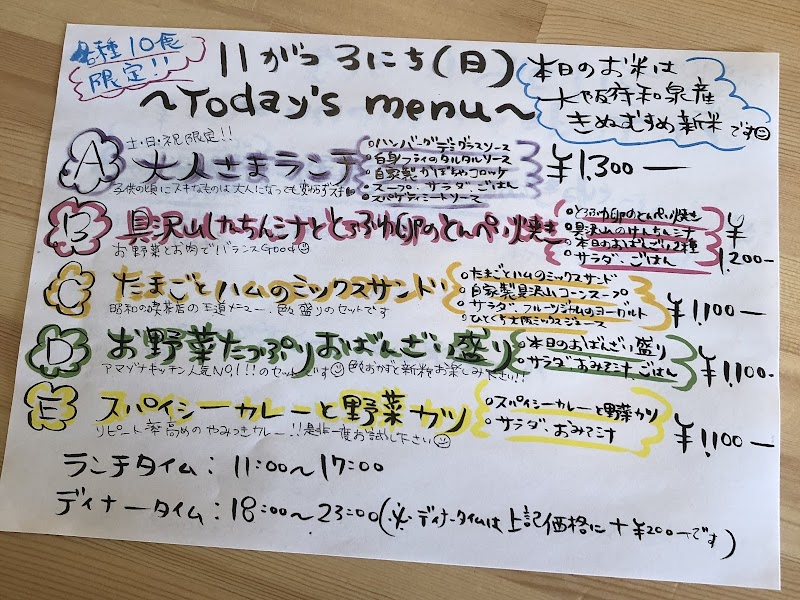 各種10食
限定!!
11がつ3にち(日)
〜Today's menu〜
本日のお米は
大阪府和泉産
きぬむすめ新米です
土・日・祝限定!!
A 大人さまランチ
子供の頃にスキなものは大人になっても変わらずスキ
○ハンバーグデミグラスソース
○白身フライのタルタルソース
○自家製かぼちゃコロッケ
○スープ、サラダ、ごはん
○スパゲティミートソース
¥1,300—
B 具沢山けんちん汁とどろぶ卵のとんぺい焼き
お野菜とお肉でバランスGood
○とろぶ卵のとんぺい焼き
○具沢山のけんちん汁
○本日のおばんざい2種
○サラダ、ごはん
¥1,200—
C たまごとハムのミックスサンド
昭和の喫茶店の王道メニュー、飯盛りのセットです
○たまごとハムのミックスサンド
○自家製具沢山コーンスープ
○サラダ、フルーツジャムのヨーグルト
○ひとくち大阪ミックスジュース
¥1,100—
D お野菜たっぷりおばんざい盛り
アマゾナキッチン人気NO,1!!のセットです
○本日のおばんざい盛り
○サラダ、おみそ汁、ごはん
¥1,100—
E スパイシーカレーと野菜カツ
リピート率高めのやみつきカレー!!是非一度お試し下さい
○スパイシーカレーと野菜カツ
○サラダ、おみそ汁
¥1,100—
ランチタイム:11:00〜17:00
ディナータイム:18:00〜23:00(※ディナータイムは上記価格に+¥200—です)